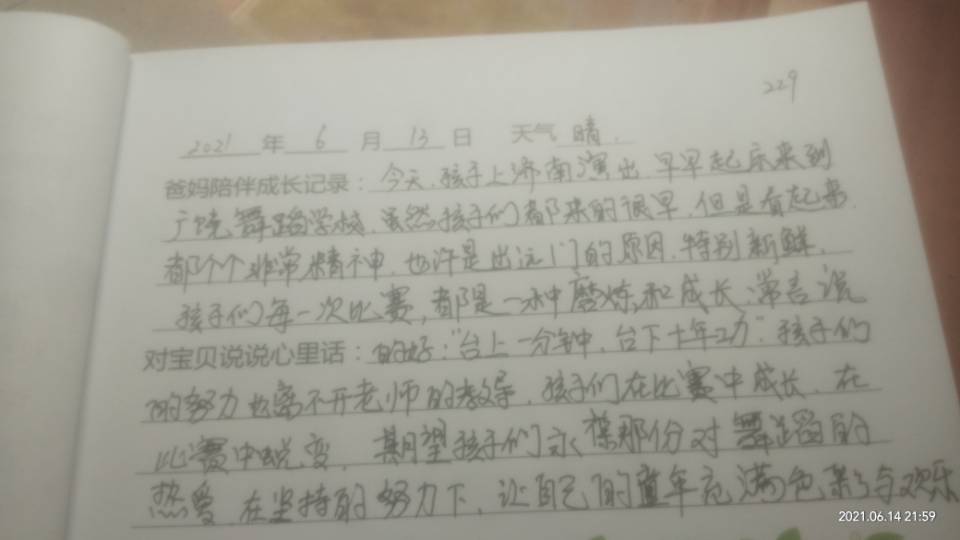 229
2021 年 6 月 13 日 天气 晴.
爸妈陪伴成长记录：今天,孩子上济南演出,早早起床来到
广饶舞蹈学校,虽然孩子们都来的很早,但是看起来
都个个非常精神,也许是出远门的原因,特别新鲜,
孩子们每一次比赛,都是一种磨炼和成长,常言说
对宝贝说说心里话：的好:"台上一分钟,台下十年功",孩子们
的努力也离不开老师的教导,孩子们在比赛中成长,在
比赛中蜕变,期望孩子们永葆那份对舞蹈的
热爱,在坚持的努力下,让自己的童年充满色彩与欢乐
2021.06.14 21:59